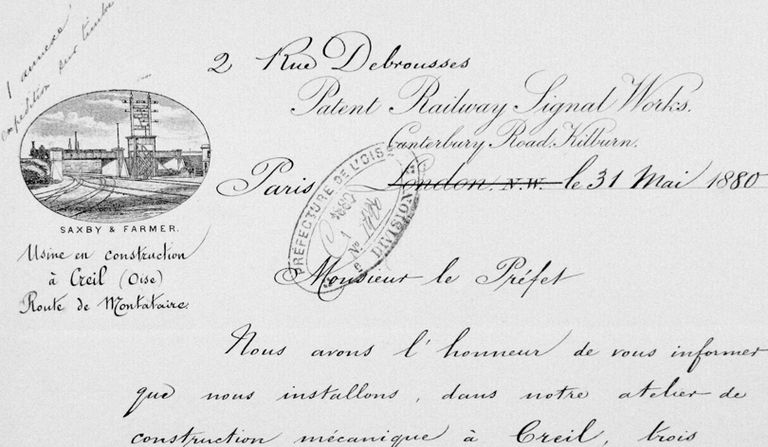 1 annexe
expédition sur timbre
2 Rue Debrousses
Patent Railway Signal Works.
Canterbury Road, Kilburn.
Paris London N.W. le 31 Mai 1880
PRÉFECTURE DE L'OISE
DIVISION
No
SAXBY & FARMER.
Usine en construction
à Creil (Oise)
Route de Montataire.
Monsieur le Préfet
Nous avons l'honneur de vous informer
que nous installons, dans notre atelier de
construction mécanique à Creil, trois